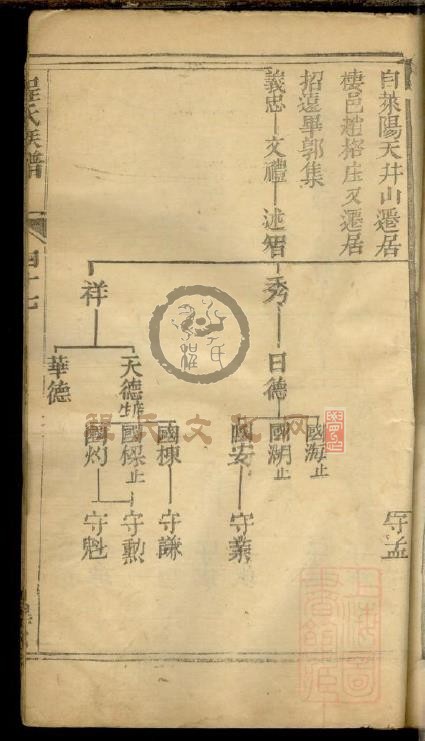 自萊陽天井山遷居
棲邑趙格庄又遷居
招遠畢郭集
義忠 文禮 述智
秀 祥
日德 天德 華德
國海止 國湖止 國安 國棟 國樑止 國灼
守孟 守業 守謙 守勲 守魁
程氏族譜
四十七
程氏文化网